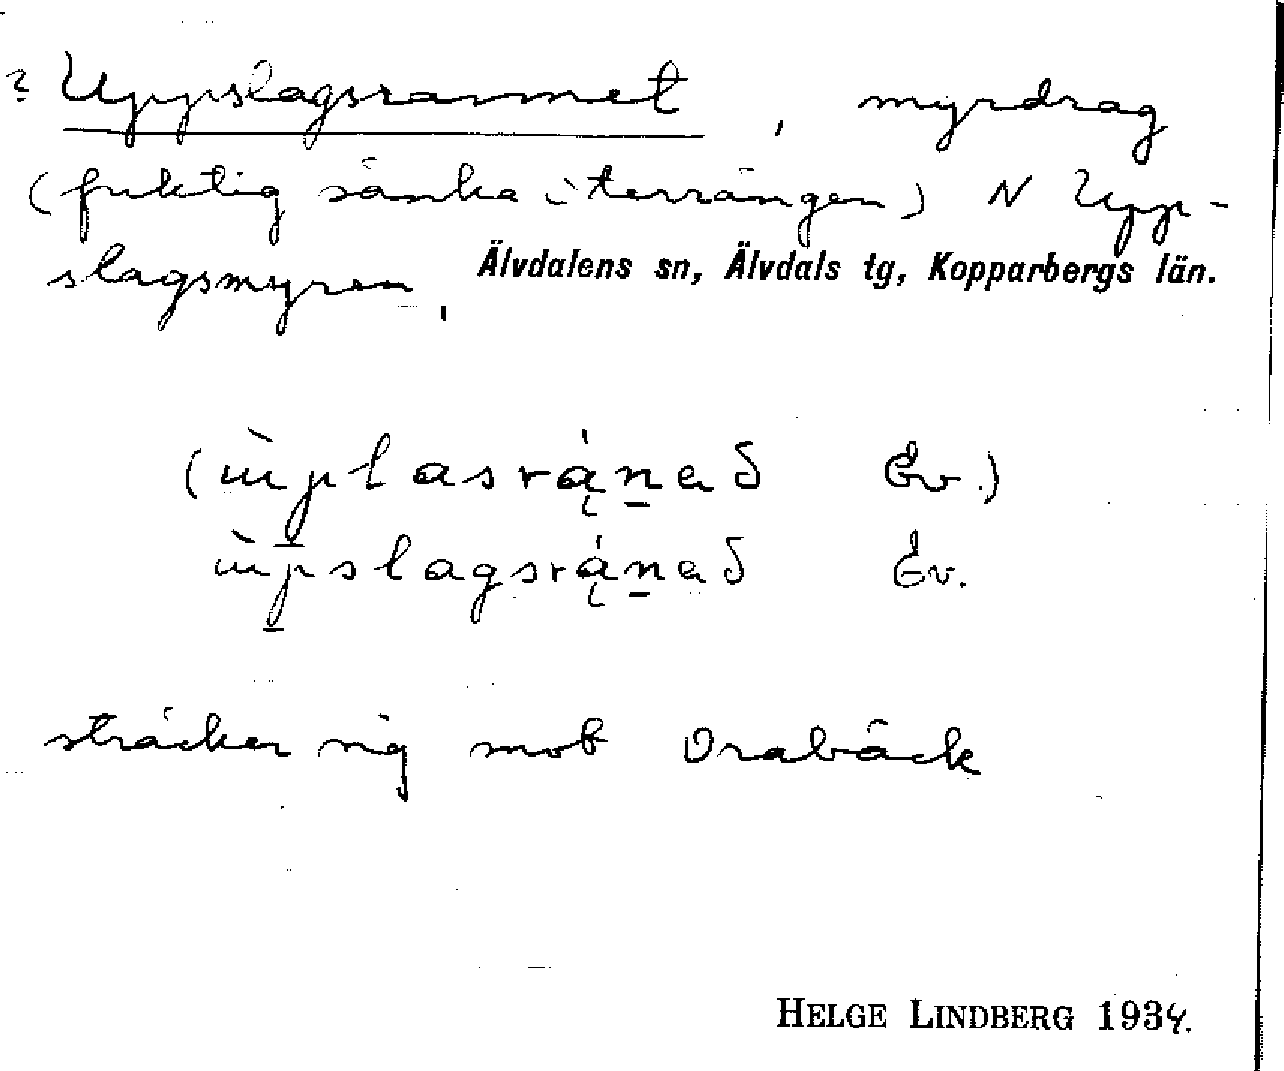 ? Uppslagsrannet, myrdrag
(fuktig sänka i terrängen) N Upp-
slagsmyren. Älvdalens sn, Älvdals tg, Kopparbergs län.
(ùp̲lasrą́n̲eð Ev.)
ùp̲slagsrą́n̲eð Ev.
sträcker sig mot Orabäck
HELGE LINDBERG 1934.